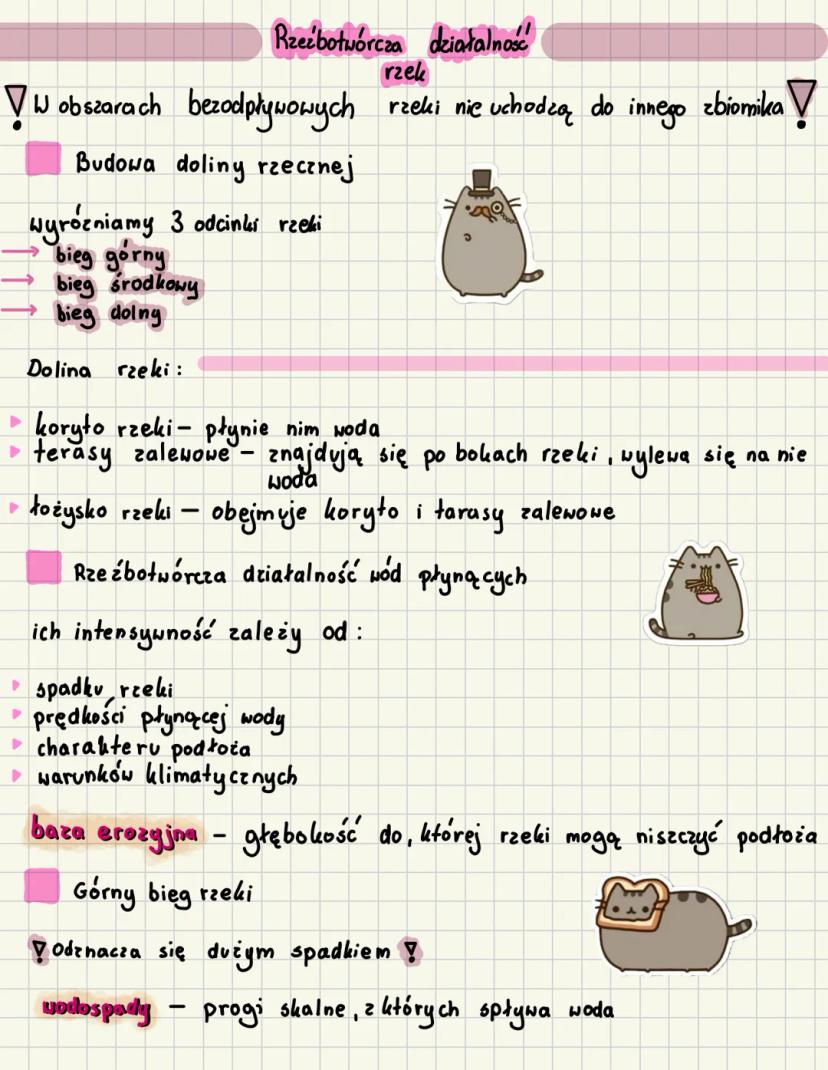 Rzeźbotwórcza działalność
rzek
! W obszarach bezodpływowych rzeki nie uchodzą do innego zbiornika !
Budowa doliny rzecznej
wyróżniamy 3 odcinki rzeki
→ bieg górny
→ bieg środkowy
→ bieg dolny
Dolina rzeki:
koryto rzeki – płynie nim woda
terasy zalewowe – znajdują się po bokach rzeki, wylewa się na nie
woda
łożysko rzeki – obejmuje koryto i tarasy zalewowe
Rzeźbotwórcza działalność wód płynących
ich intensywność zależy od:
spadku rzeki
prędkości płynącej wody
charakteru podłoża
warunków klimatycznych
baza erozyjna – głębokość do, której rzeki mogą niszczyć podłoża
Górny bieg rzeki
! Odznacza się dużym spadkiem !
wodospady – progi skalne, z których spływa woda